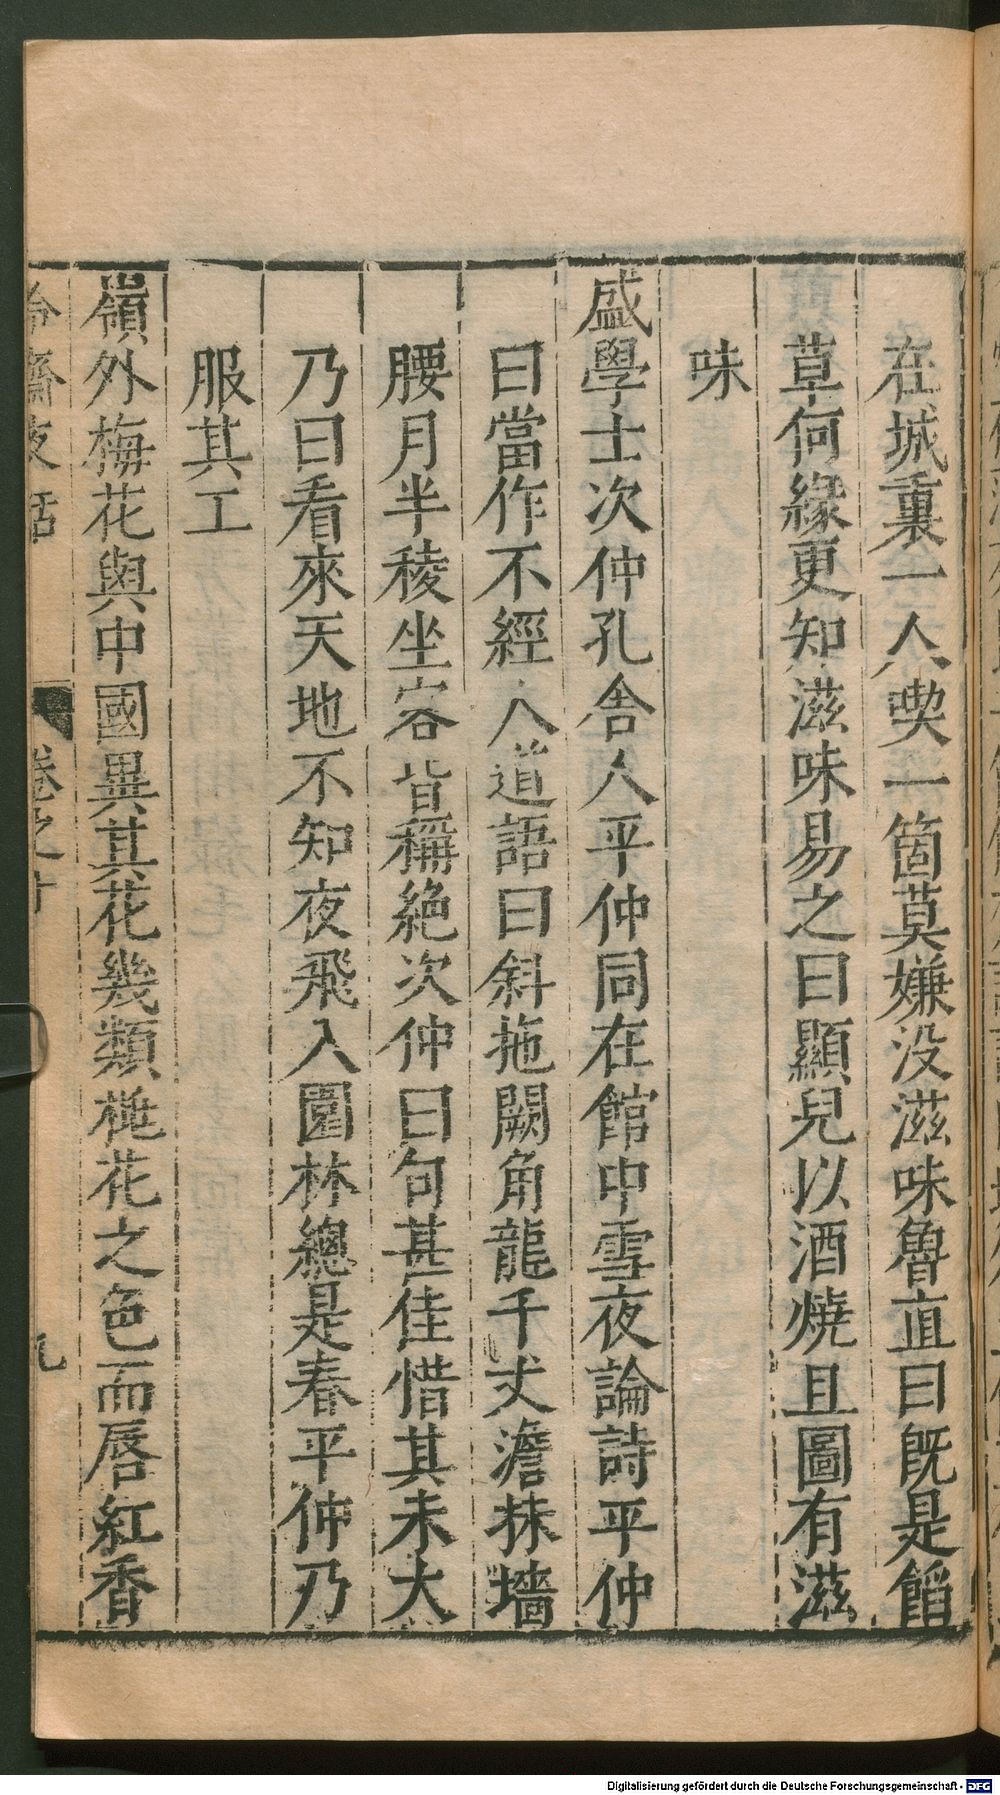 在城裏一人喫一箇莫嫌没滋味魯直曰旣是餡
草何緣更知滋味易之曰顯兒以酒燒且圖有滋
味
盛學士次仲孔舍人平仲同在館中雪夜論詩平仲
曰當作不經人道語曰斜拖闕角龍千丈澹抹墻
腰月半稜坐客皆稱絶次仲曰句甚佳惜其未大
乃曰看來天地不知夜飛入園林總是春平仲乃
服其工
嶺外梅花與中國異其花幾類桃花之色而唇紅香
冷齋夜話 卷之十 九
Digitalisierung gefördert durch die Deutsche Forschungsgemeinschaft - DFG